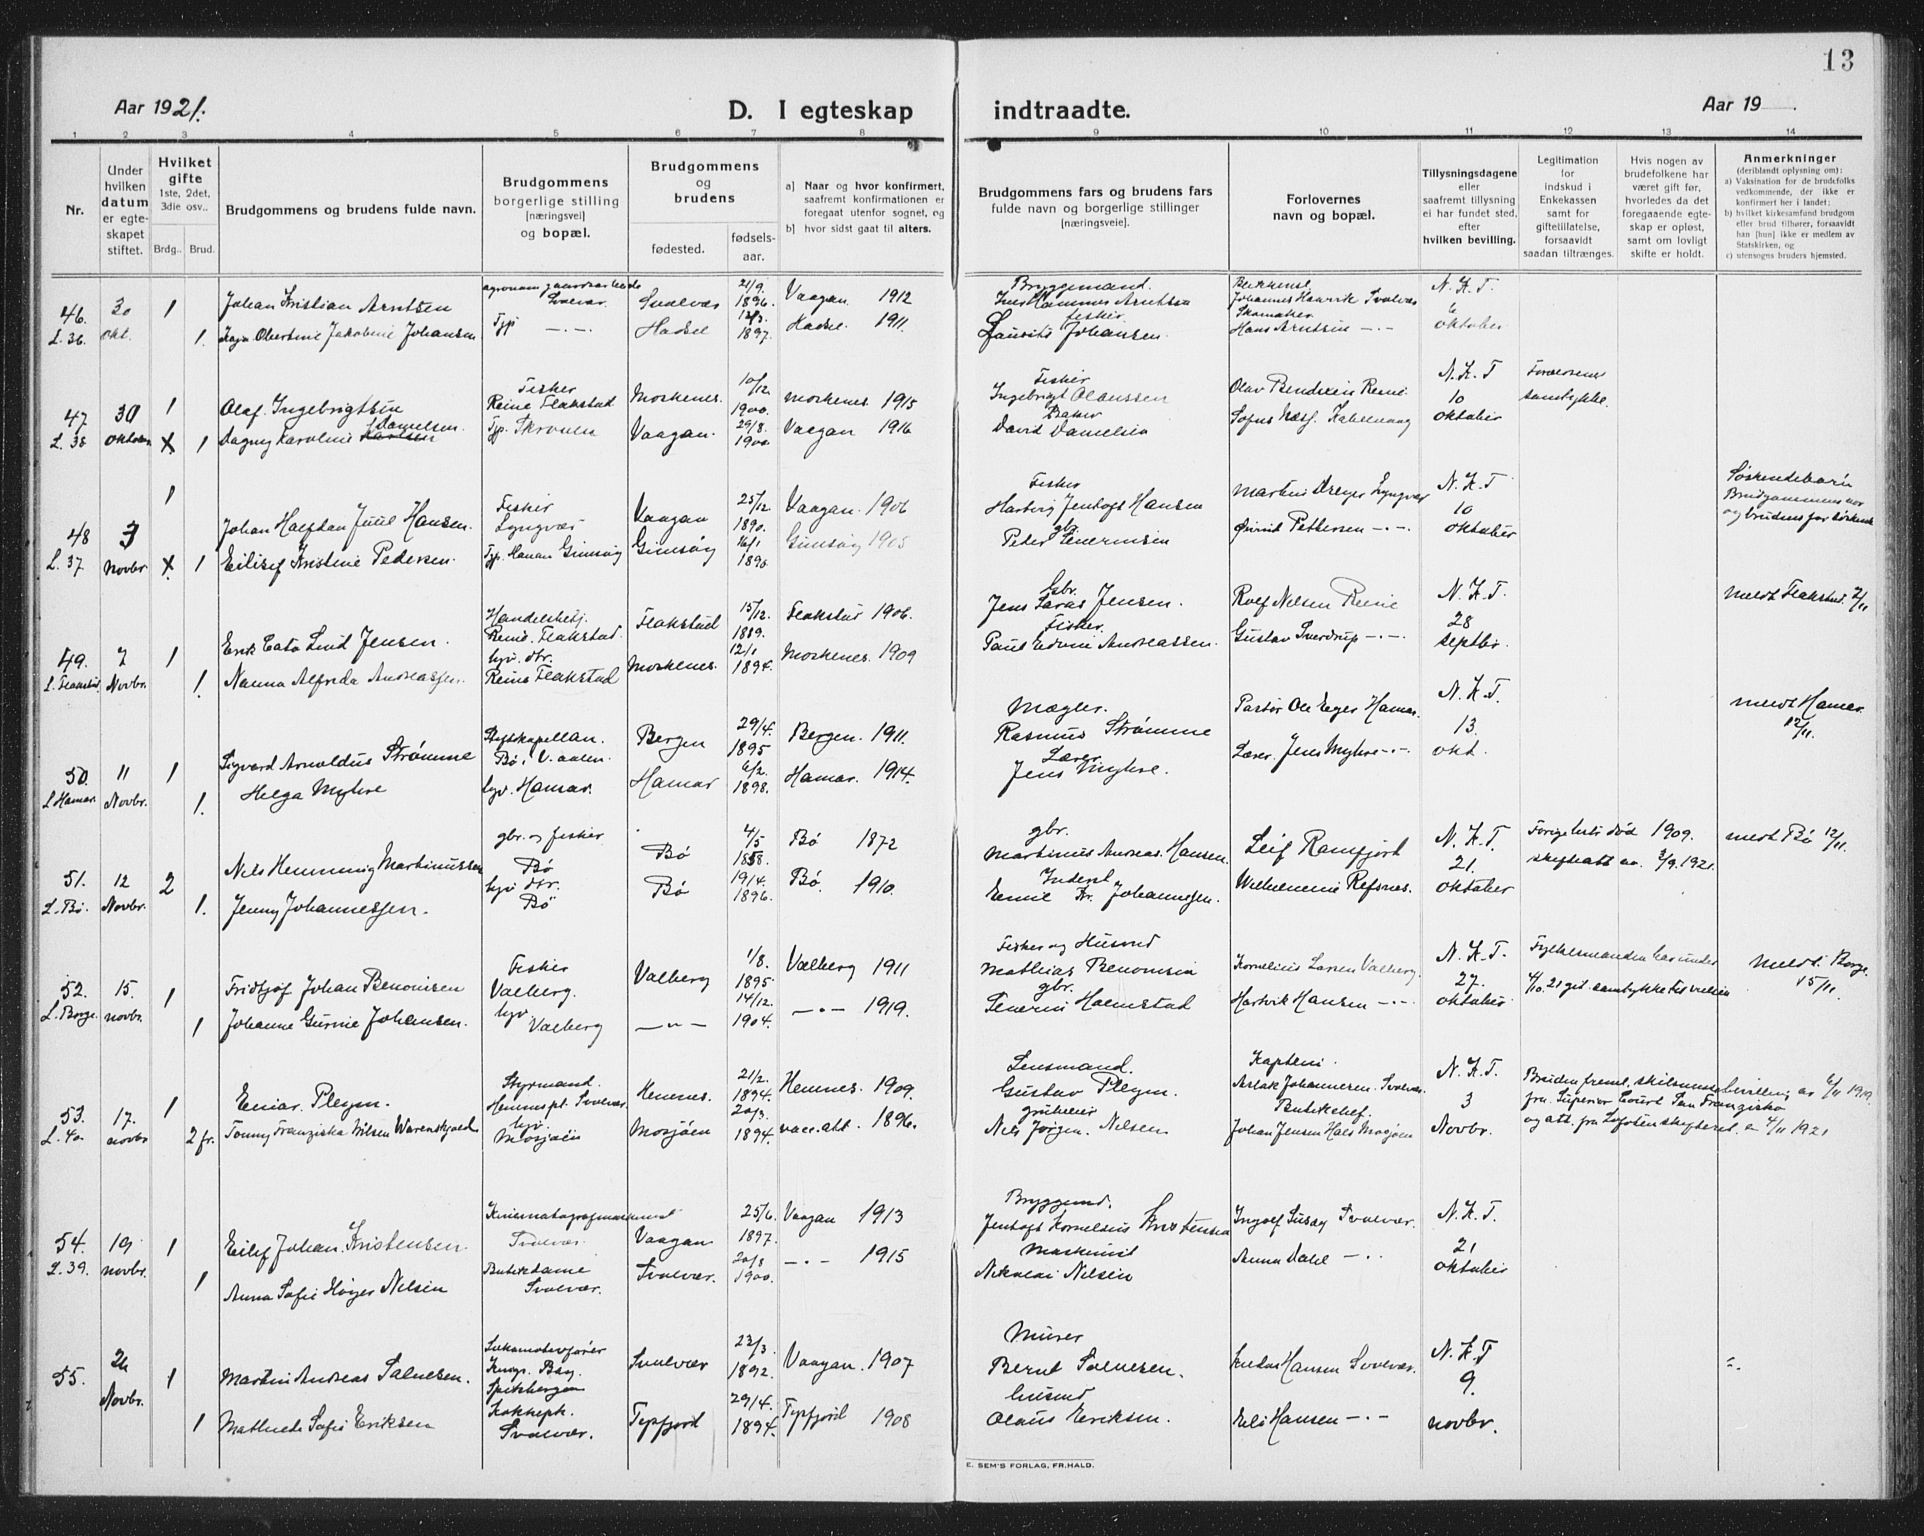 13
Aar 1921.
D. I egteskap indtraadte.
Aar 19
1 2 3 4 5 6 7 8 9 10 11 12 13 14
Nr.
Under hvilken datum er egte-skapet stiftet.
Hvilket gifte 1ste, 2det, 3die osv..
Brdg.. Brud.
Brudgommens og brudens fulde navn.
Brudgommens borgerlige stilling [næringsvei] og bopæl.
Brudgommens og brudens
fødested.
fødsels-aar.
a] Naar og hvor konfirmert, saafremt konfirmationen er foregaat utenfor sognet, og
b] hvor sidst gaat til alters.
Brudgommens fars og brudens fars fulde navn og borgerlige stillinger [næringsveie].
Forlovernes navn og bopæl.
Tillysningsdagene eller saafremt tillysning ei har fundet sted, efter hvilken bevilling.
Legitimation for indskud i Enkekassen samt for giftetillatelse, forsaavidt saadan tiltrænges.
Hvis nogen av brudefolkene har været gift før, hvorledes da det foregaaende egte-skap er opløst, samt om lovligt skifte er holdt.
Anmerkninger (deriblandt oplysning om): a) Vaksination for de brudefolks vedkommende, der ikke er konfirmert her i landet; b) hvilket kirkesamfund brudgom eller brud tilhører, forsaavidt han [hun] ikke er medlem av Statskirken, og c) utensogns bruders hjemsted.
46. 30 1 Johan Kristian Arntsen Svolvær Svolvær 21/9. 1896. Vaagan 1912 Bryggemand. Johannes Henrik Svolvær N.K.T.
L. 36 okt. 1. Kaja Obertine Jakobine Johansen Tjp — Hadsel 1897. Hadsel. 1911. fisker Laurits Johansen. Skomaker Hans Arntsen 6 oktober
47 30 1 Olaf Ingebrigtsen Fisker Reine Flakstad Moskenes. 10/12 1900. Moskenes 1915 Fisker Ingebrigt Olaussen Olav Bendixen Reine N.K.T 10 Forældrenes samtykke.
L. 38 oktober x 1 Dagny Karoline Danielsen Tjp. Skroven Vaagan. 29/8. 1900 Vaagan 1916 Baker David Danielsen Kabelvaag oktober
48 3 1 Johan Halfdan Juul Hansen. Fisker Lyngvær Vaagan 25/12 1890. Vaagan. 1906 Fisker Hartvig Jentoft Hansen Martin Dreyer Lyngvær N.K.T 10 Søskendebarn Brudgommens mor og brudens far søskende
L. 37 Novbr x 1 Eilisef Kristine Pedersen. Tjp. Gimsøy Gimsøy 16/1 1890. Gimsøy 1905 gbr. Peder Severinsen Øivind Pettersen oktober
49. 7 1 Erik Cato Lind Jensen. Handelsbetj. Reine. Flakstad. Flakstad 15/12. 1889. Flakstad 1906. Gbr. Jens Jensen. Rolf Nilsen Reine N.K.T. 28 meldt Flakstad 2/11
L. Flakstad Novbr. 1. Nanna Alfrida Andreassen. hjv. dtr. Reine Flakstad Moskenes. 12/1 1894. Moskenes 1909 Fisker. Paul Edvin Andreassen. Gustav Sverdrup septbr.
50 11 1 Sigvard Arnoldus Strømme Stiftskapellan. Bø, V.aalen. Bergen 29/4. 1895 Bergen. 1911. Mægler. Rasmus Strømme Pastor Ole Eger Hamar. N.K.T. 13. meldt Hamar. 12/11.
L Hamar. Novbr. 1. Helga Myhre hjv. Hamar. Hamar 6/2. 1898. Hamar. 1914. Lærer Jens Myhre. Lærer. Jens Myhre okt.
51. 12 2 Nils Hemming Martinussen gbr. og fisker Bø Bø 4/5 1858. Bø 1872 gbr. Martinus Andreas. Hansen. Leif Ramfjort N.K.T. 21. Forige hustr. død 1909. skifteatt. av 3/9. 1921. meldt Bø 12/11.
L. Bø. Novbr. 1. Jenny Johannessen. hjv dtr. Bø Bø 19/4. 1896. Bø. 1910. Inderst Emil Kr. Johannessen. Wilhelmine Refsnes. oktober
52. 15. 1 Fridtjof Johan Benonisen Fisker Valberg. Valberg 1/8. 1895 Valberg 1911 Fisker og Husmd Mathias Benonisen Kornelius Larsen Valberg. N.K.T. 27. Fylkesmanden har under 4/10. 21 git samtykke til vielsen meldt Borge. 15/11.
L. Borge. novbr. 1 Johanne Gurine Johansen. hjv. Valberg —"— 14/12. 1904. —"— 1919. gbr. Severin Halmstad Hartvik Hansen oktober
53. 17. 1 Einar. Plejm. Styrmand. Svolvær. Hemnes. 21/2. 1894. Hemnes. 1909. Lensmand. Gustav Plejm. Kaptein. Aslak Johannesen. Svolvær. N.K.T. 3 Bruden freml. skilsmissebevilling av 6/11 1919. fra Superior Court San Franzisko og att. fra Lofoten skifteret. 4/11 1921
L. 40 novbr 2 fr. Tonny Franziska Nilsen Warenskjold hjv. Mosjøen Mosjøen 20/3. 1894. vacc.att. 1896. Nils Jørgen. Nilsen Butikchef. Johan Jensen Hals Mosjøen Novbr.
54. 19 1 Eilif Johan. Kristensen Kinematografmaskinist Svolvær. Vaagan 25/6. 1897. Vaagan 1913 Bryggemd. Jentoft Kornelius Kristensen Ingolf Svolvær. N.K.T. 21
L. 39. novbr. 1 Anna Sofie Høyer Nilsen Butikdame Svolvær. Svolvær. 20/8 1900. —"— 1915 Maskinist Nikolai Nilsen Anna Dahl oktober
55. 26 Novbr. 1 Martin Andreas Salvesen. Lokomotivfører Kings Bay Spitsbergen Svolvær 23/3. 1892. Vaagan. 1907 Murer Bernt Salvesen. Hansen Svolvær. N.K.T 9.
1 Mathilde Sofie Eriksen Kokkepk. Svolvær. Typfjord 29/4. 1894. Typfjord 1908 husmd Olaus Eriksen. Hansen novbr.
E. SEM'S FORLAG, FR.HALD.